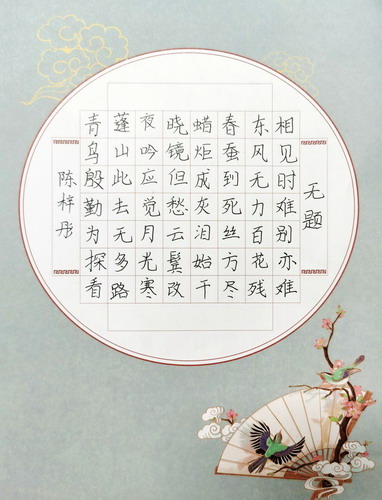 无题
相见时难别亦难
东风无力百花残
春蚕到死丝方尽
蜡炬成灰泪始干
晓镜但愁云鬓改
夜吟应觉月光寒
蓬山此去无多路
青鸟殷勤为探看
陈梓彤